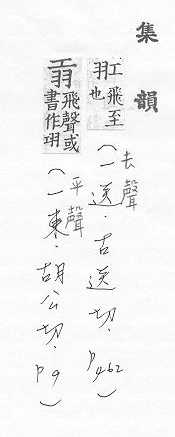 集韻
羾飛至
也
去聲
(一送．古送切．P462)
飛聲或
書作羾
平聲
(一東．胡公切．P9)